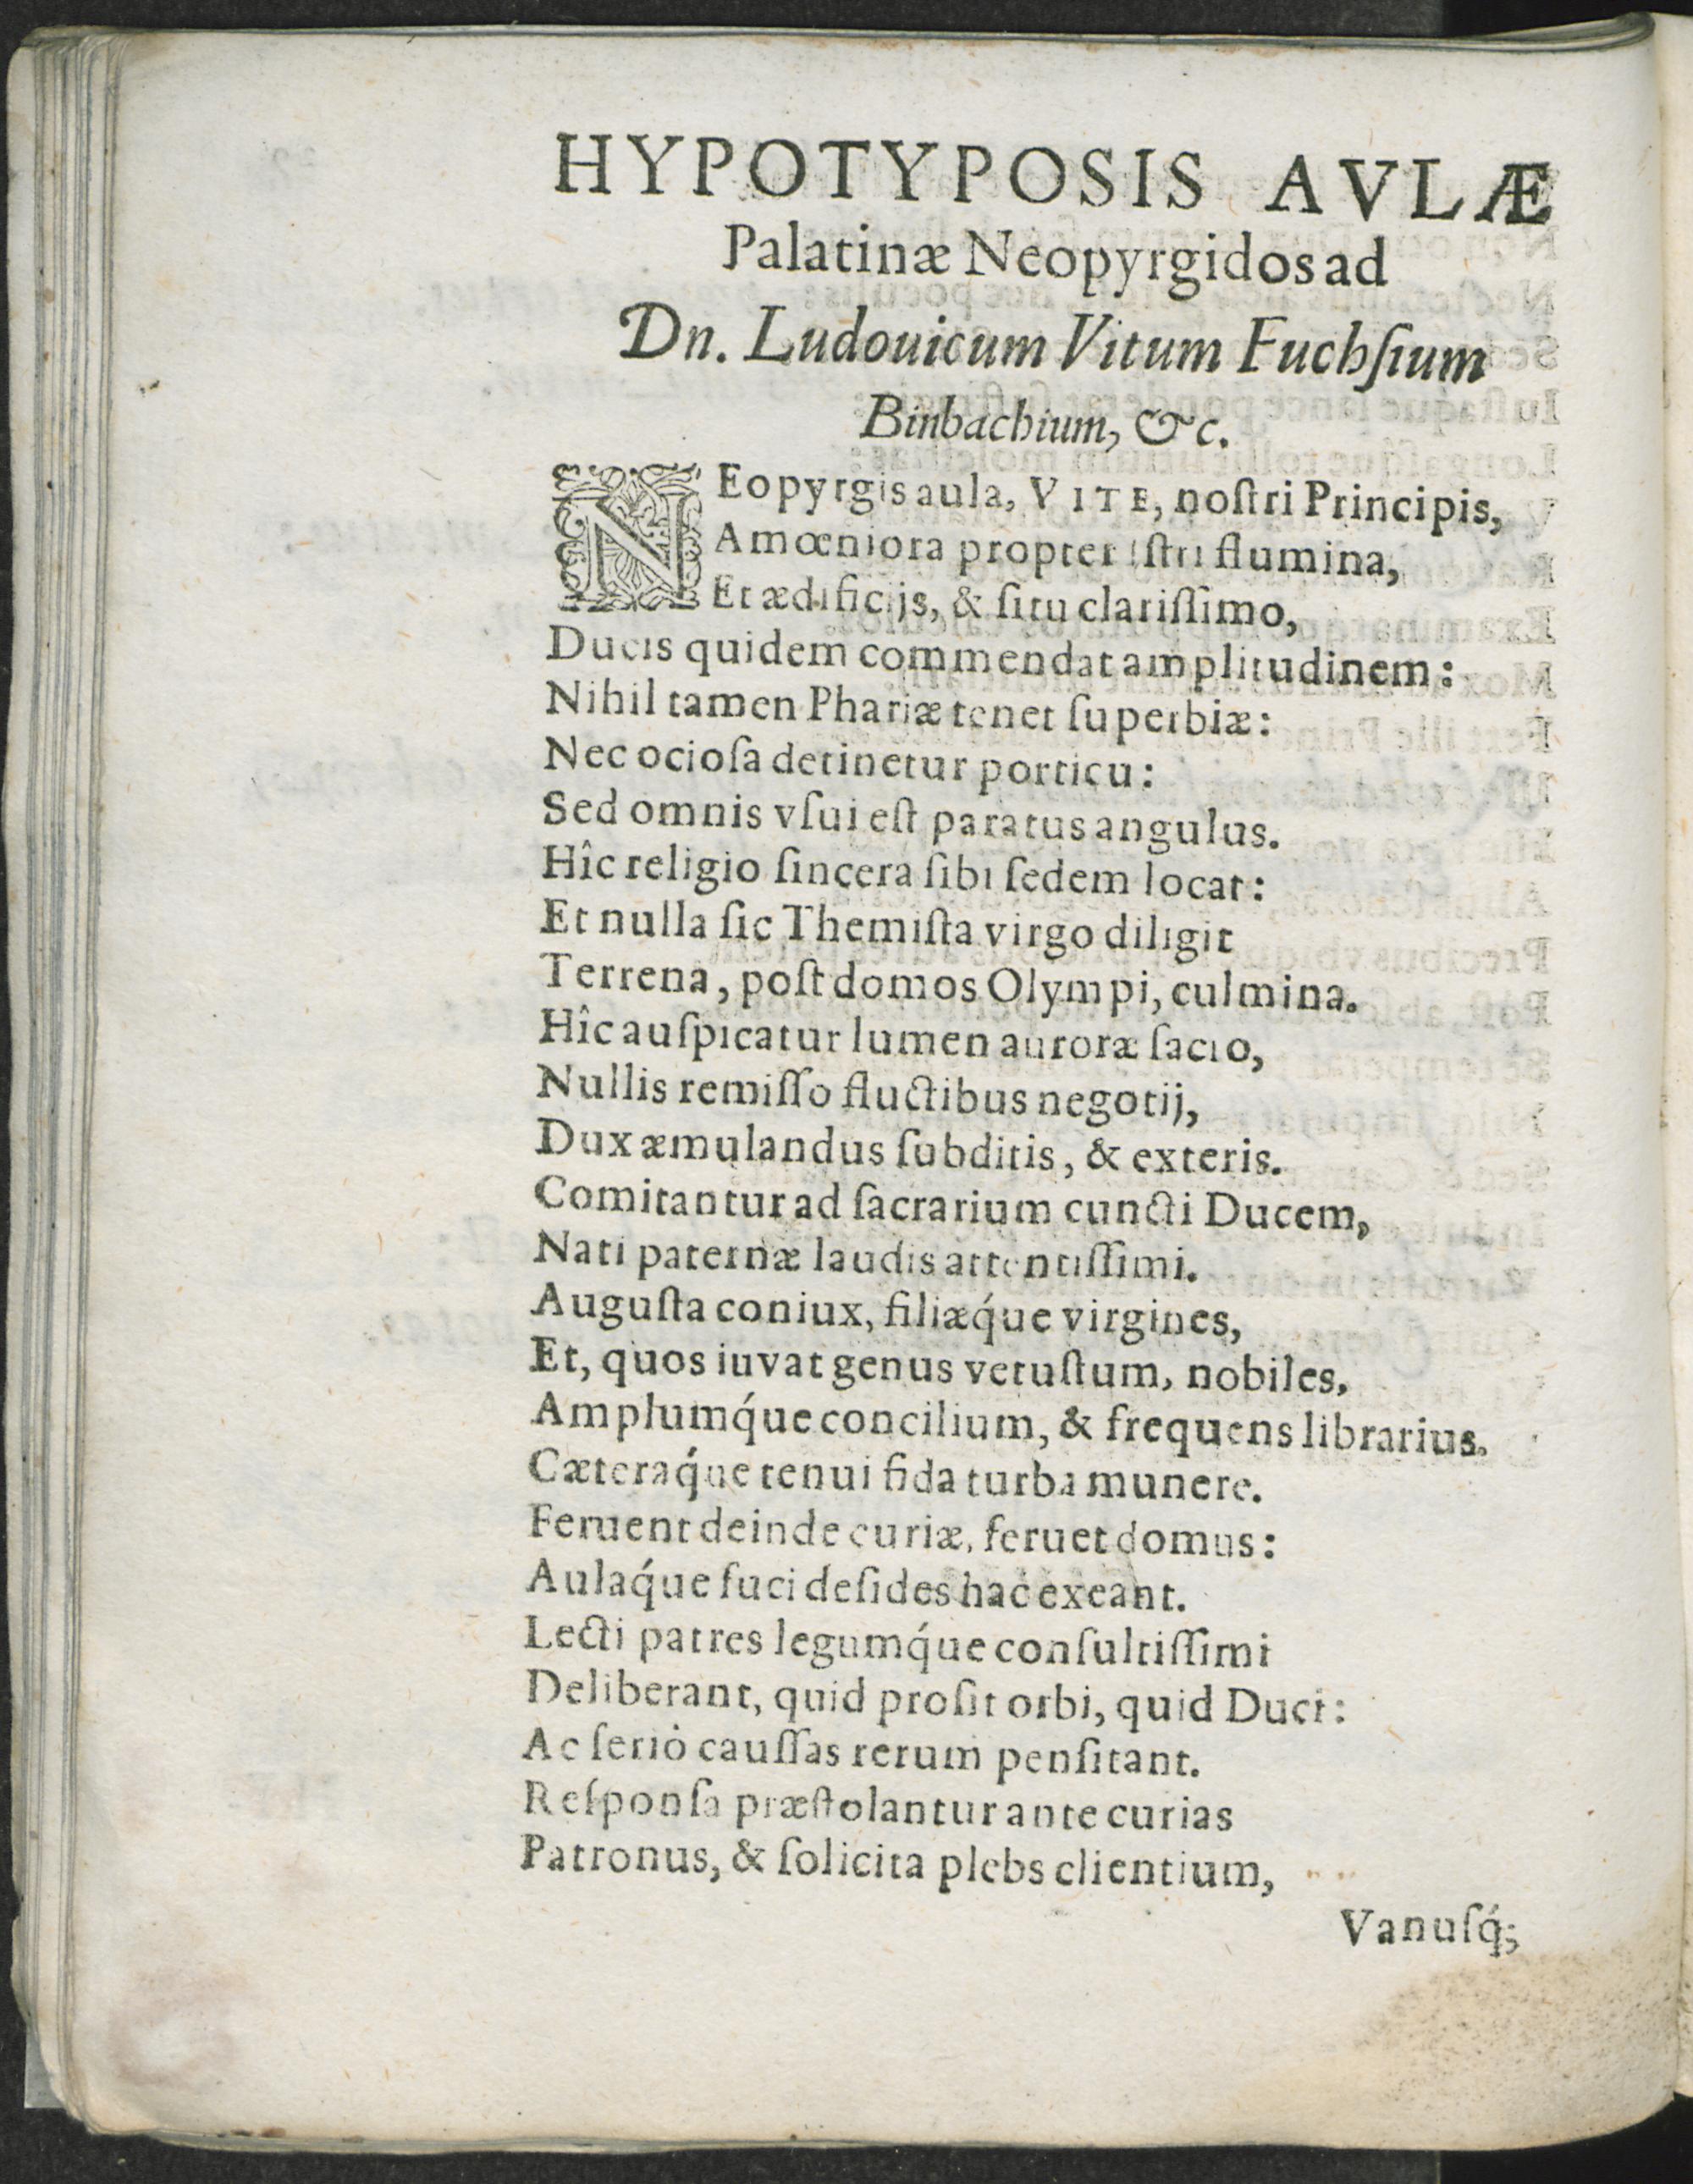 HYPOTYPOSIS AVLÆ
Palatinæ Neopyrgidos ad
Dn. Ludouicum Vitum Fuchſium
Binbachium, &c.
NEopyrgis aula, VITE, noſtri Principis,
Amœniora propter Iſtri flumina,
Et ædificijs, & ſitu clariſſimo,
Ducis quidem commendat amplitudinem:
Nihil tamen Phariæ tenet ſuperbiæ:
Nec ocioſa detinetur porticu:
Sed omnis vſui eſt paratus angulus.
Hîc religio ſincera ſibi ſedem locat:
Et nulla ſic Themiſta virgo diligit
Terrena, poſt domos Olympi, culmina.
Hîc auſpicatur lumen auroræ ſacro,
Nullis remiſſo fluctibus negotij,
Dux æmulandus ſubditis, & exteris.
Comitantur ad ſacrarium cuncti Ducem,
Nati paternæ laudis attentiſſimi.
Auguſta coniux, filiæq́ue virgines,
Et, quos iuvat genus vetuſtum, nobiles,
Amplumq́ue concilium, & frequens librarius.
Cæteraq́ue tenui fida turba munere.
Feruent deinde curiæ, feruet domus:
Aulaq́ue fuci deſides hac exeant.
Lecti patres legumq́ue conſultiſſimi
Deliberant, quid proſit orbi, quid Duci:
Ac ſeriò cauſſas rerum penſitant.
Reſponſa præſtolantur ante curias
Patronus, & ſolicita plebs clientium,
Vanuſq́;